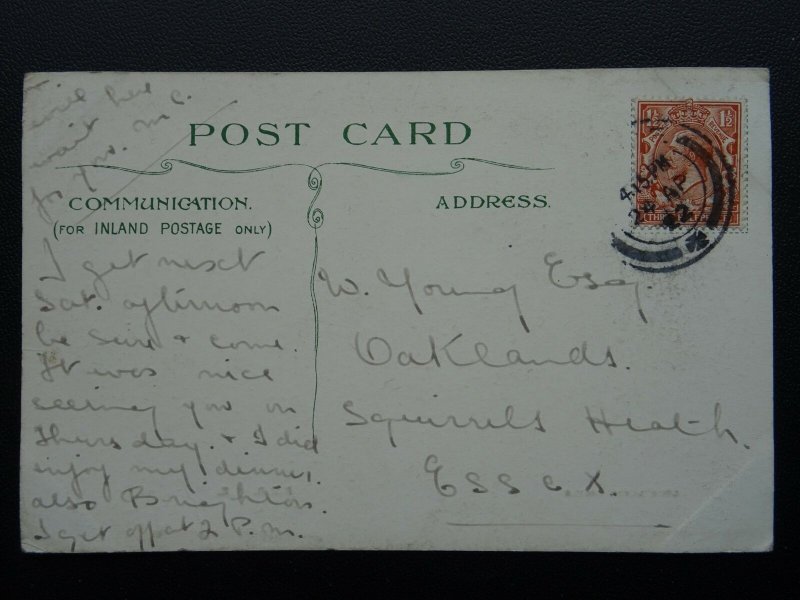 POST CARD
COMMUNICATION.
(FOR INLAND POSTAGE ONLY)
ADDRESS.
I get next
Sat. afternoon
be sure & come.
It was nice
seeing you on
Thursday. & I did
enjoy my dinner,
also Brighton.
I get off at 2 P.m.
will here
wait
for you. M C.
W. Young Esq.
Oaklands.
Squirrels Heath.
Essex.
1½ 1½
4.15 PM
24 AP
22